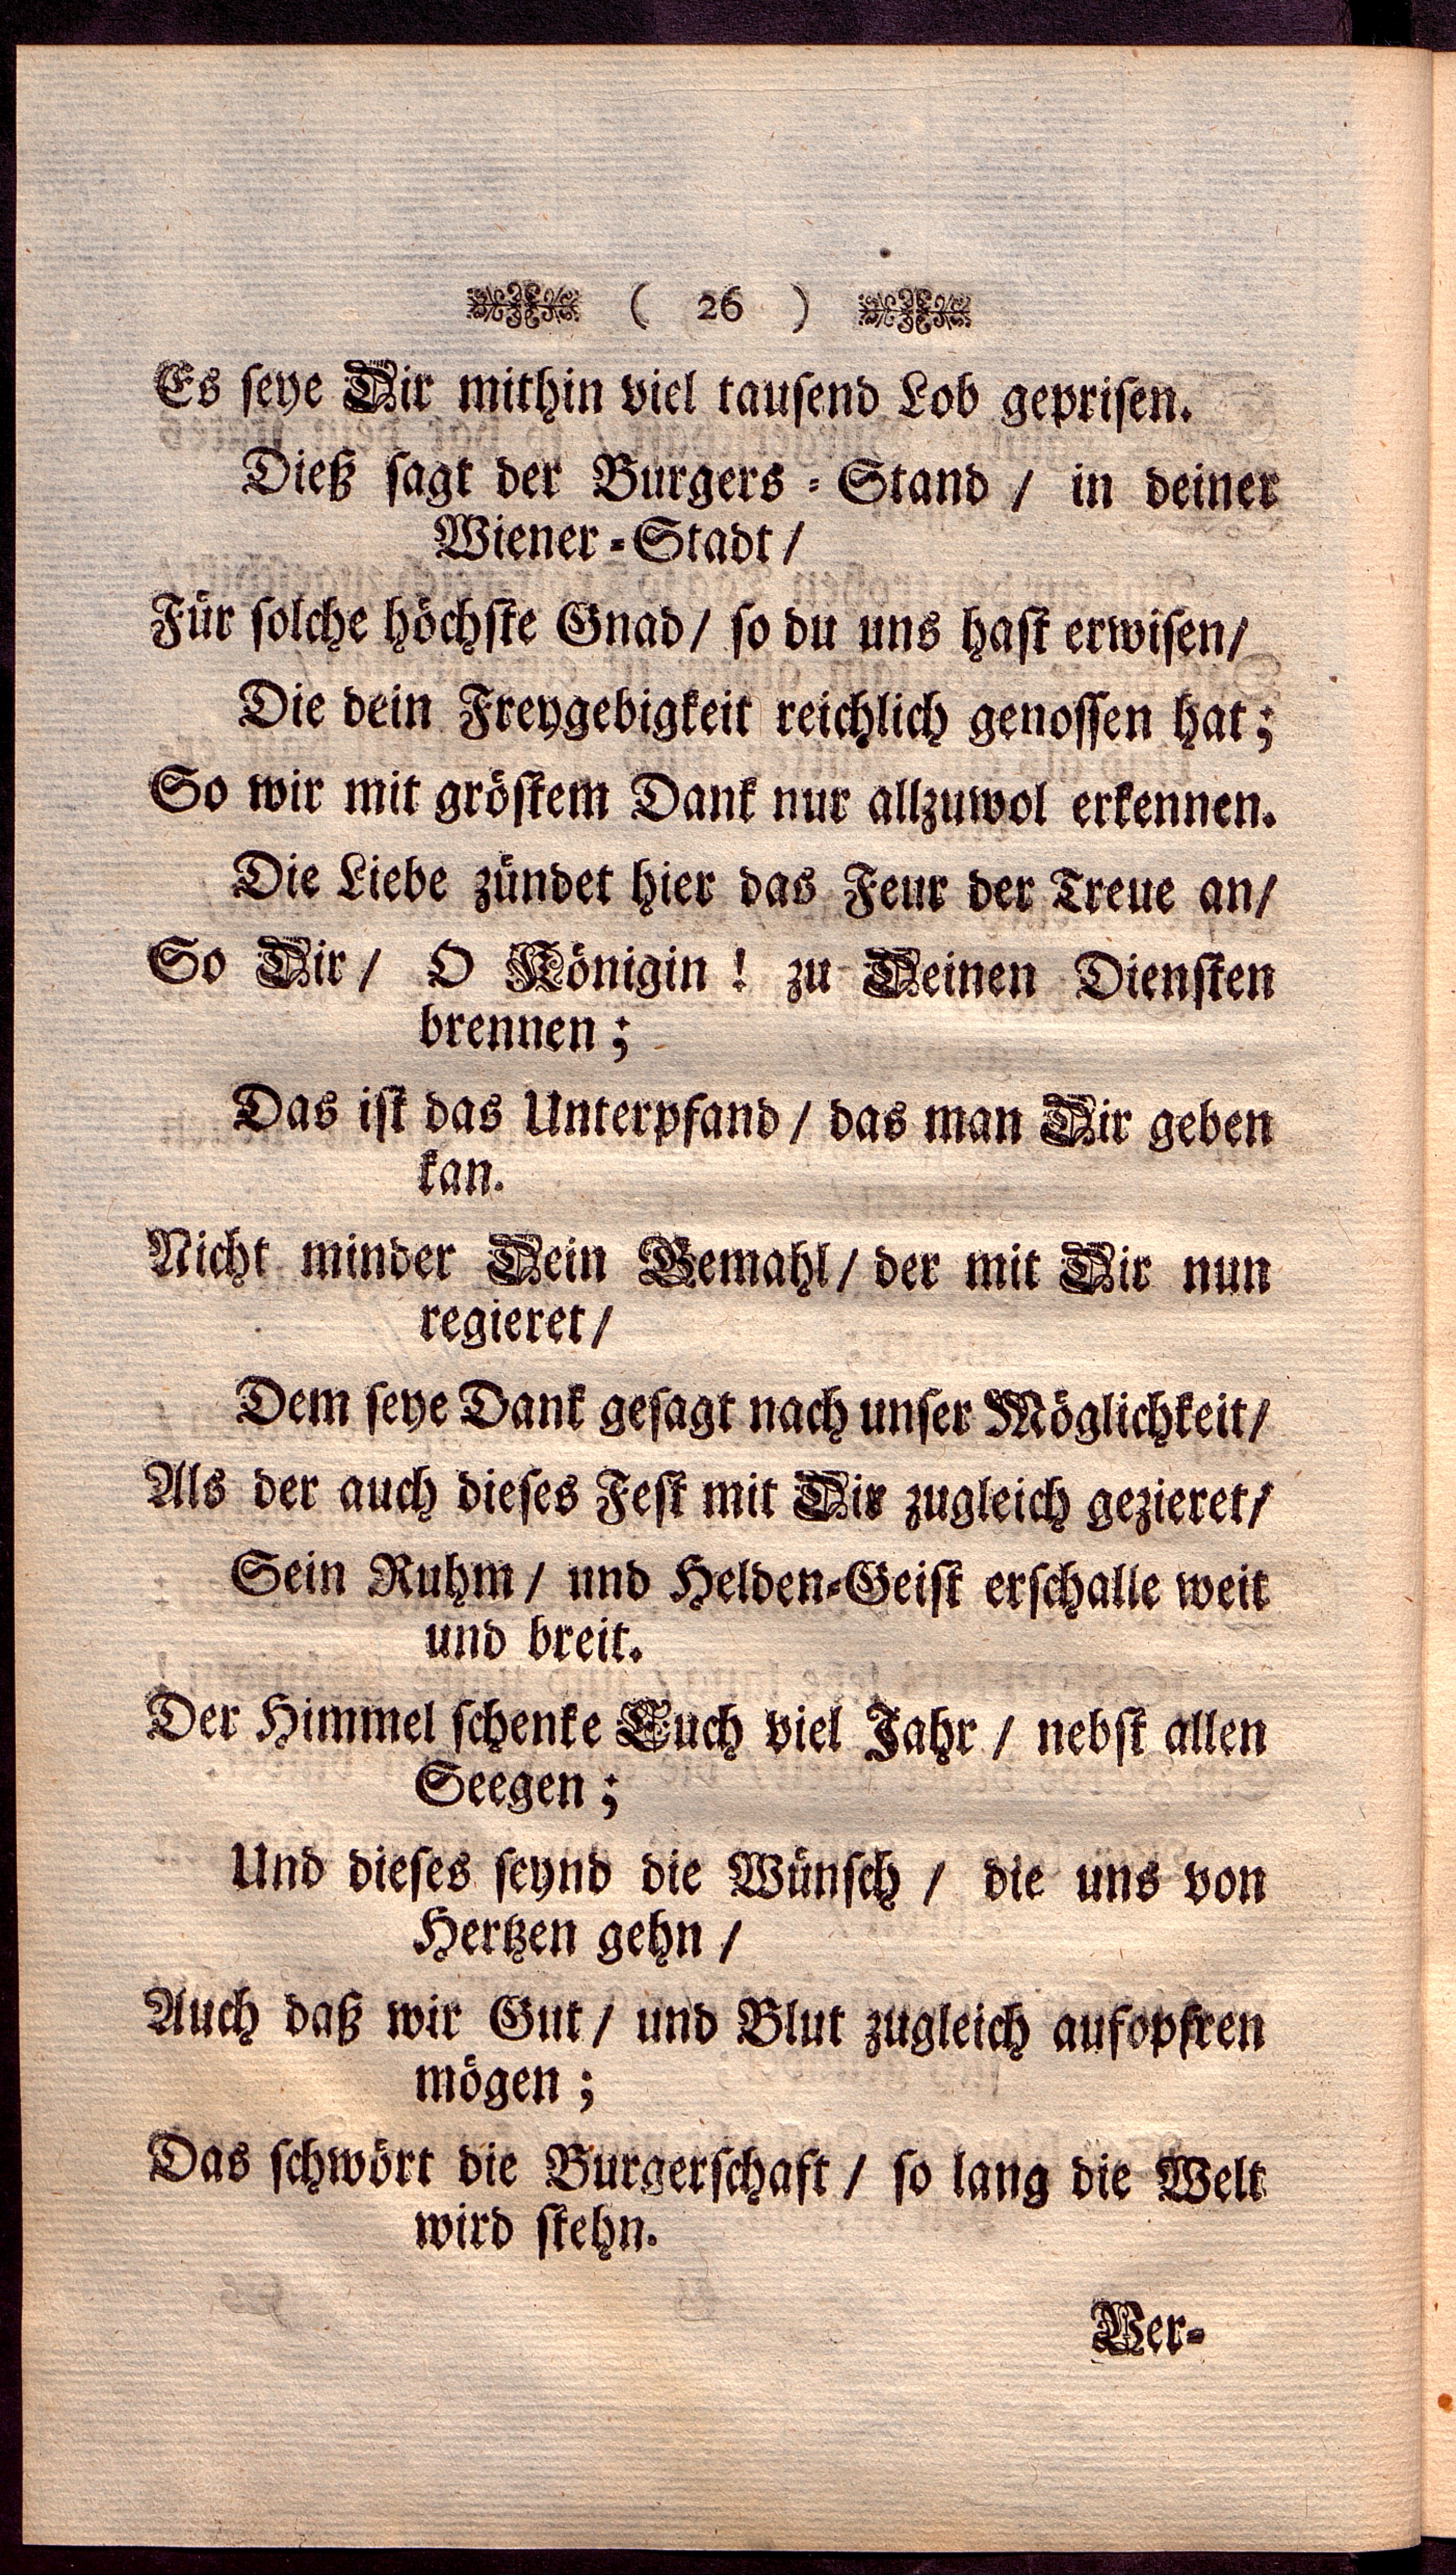 ( 26 )
Es seye Dir mithin viel tausend Lob geprisen.
Dieß sagt der Burgers-Stand / in deiner
Wiener-Stadt /
Für solche höchste Gnad / so du uns hast erwisen /
Die dein Freygebigkeit reichlich genossen hat;
So wir mit gröstem Dank nur allzuwol erkennen.
Die Liebe zündet hier das Feur der Treue an /
So Dir / O Königin! zu Deinen Diensten
brennen;
Das ist das Unterpfand / das man Dir geben
kan.
Nicht minder Dein Gemahl / der mit Dir nun
regieret /
Dem seye Dank gesagt nach unser Möglichkeit /
Als der auch dieses Fest mit Dir zugleich gezieret /
Sein Ruhm / und Helden-Geist erschalle weit
und breit.
Der Himmel schenke Euch viel Jahr / nebst allen
Seegen;
Und dieses seynd die Wünsch / die uns von
Hertzen gehn /
Auch daß wir Gut / und Blut zugleich aufopfren
mögen;
Das schwört die Burgerschaft / so lang die Welt
wird stehn.
Ver-